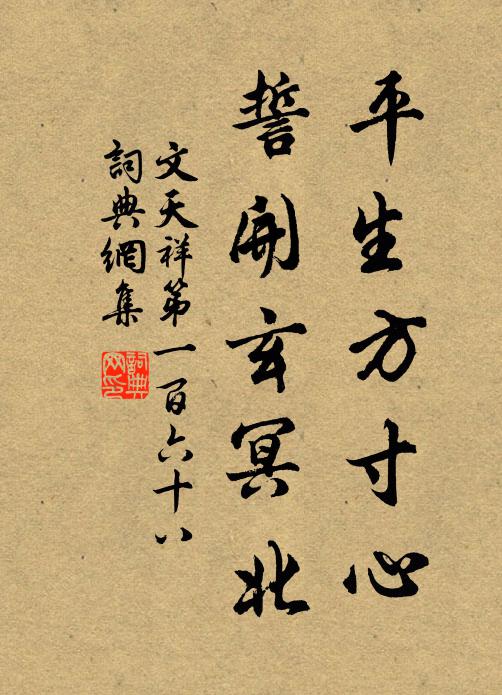 平生方寸心
誓開玄冥北
文天祥第一百六十八
詞典網集
詞典网印